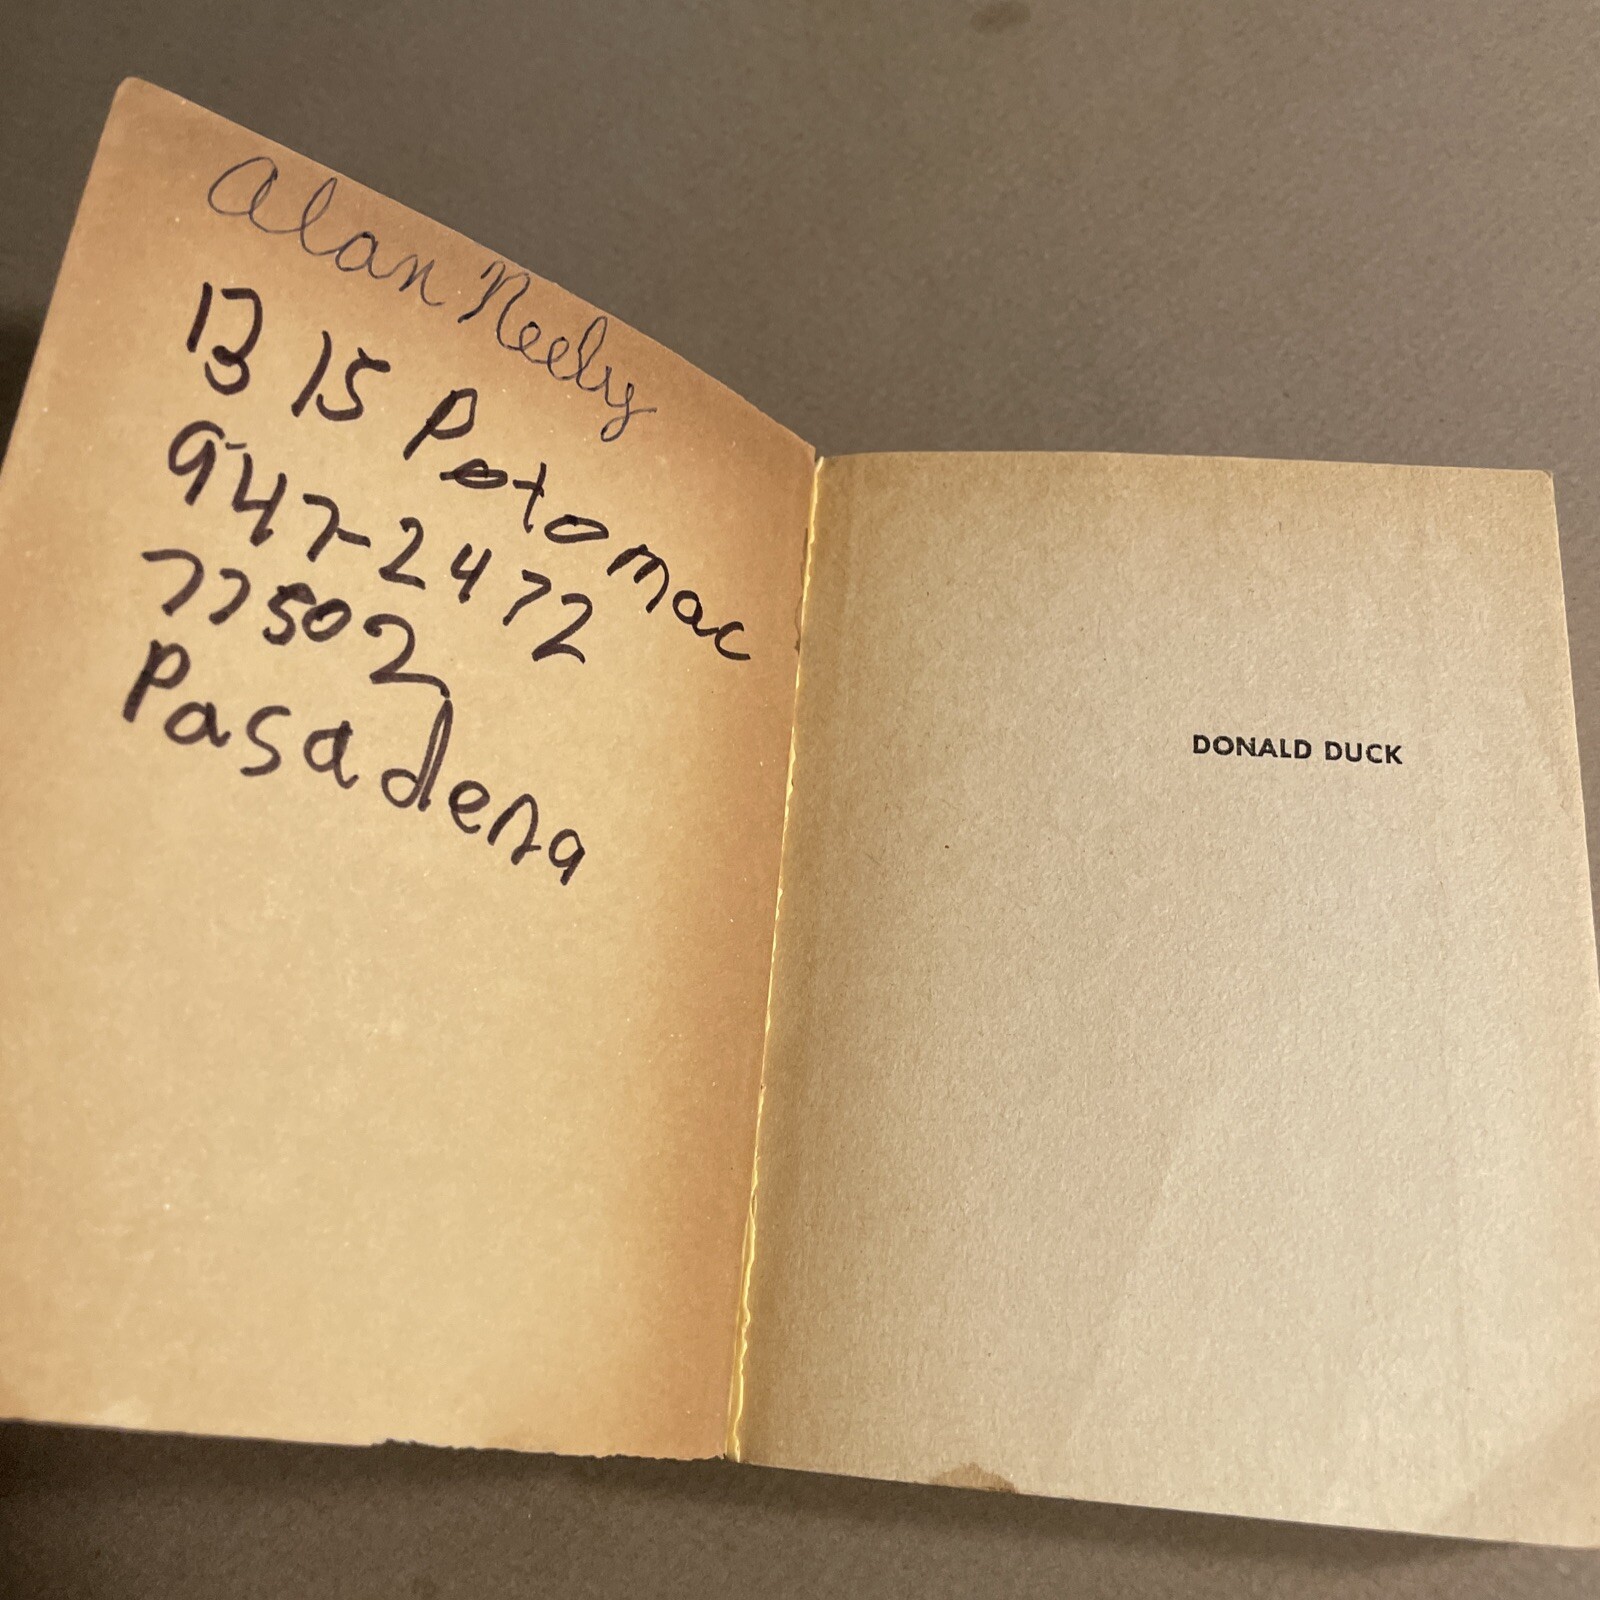 Alan Neely
1315 Potomac
947-2472
77502
Pasadena
DONALD DUCK